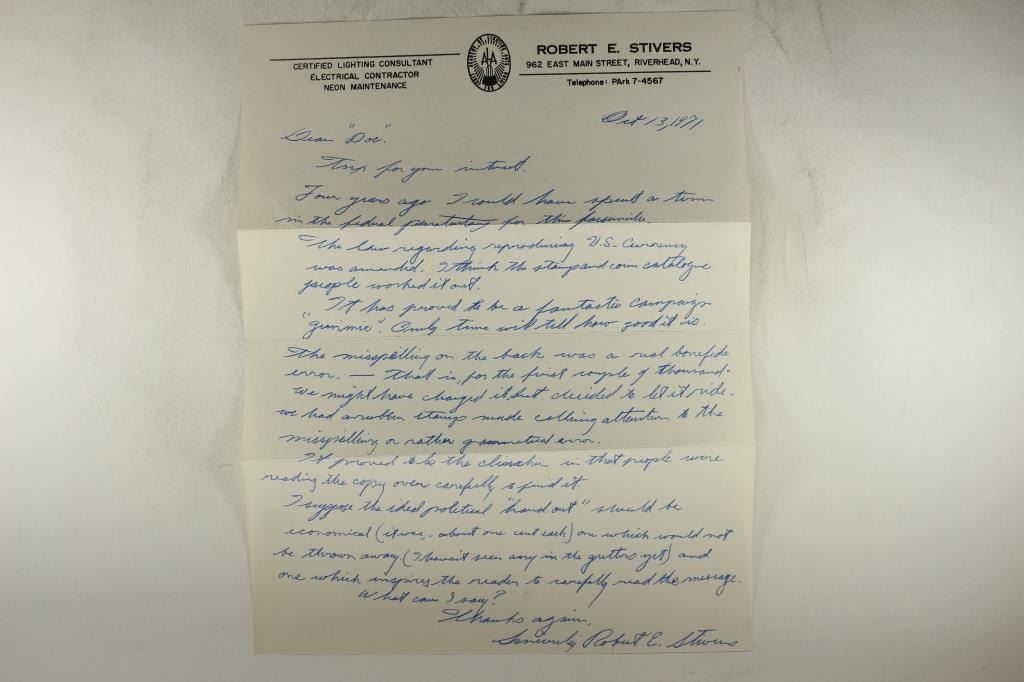 CERTIFIED LIGHTING CONSULTANT
ELECTRICAL CONTRACTOR
NEON MAINTENANCE
ROBERT E. STIVERS
962 EAST MAIN STREET, RIVERHEAD, N.Y.
Telephone: PArk 7-4567
Oct 13, 1971
Dear "Doc".
for your interest.
Four years ago I could have spent a term
in the federal for this facsimile.
The law regarding reproducing U.S. Currency
was amended. I think the stamp and coin catalogue
people worked it out.
It has proved to be a fantastic campaign
"gimmic". Only time will tell how good it is.
The misspelling on the back was a real bonefide
error. — That is, for the first couple of thousand-
we might have changed it but decided to let it ride.
we had a rubber stamp made calling attention to the
misspelling or rather error.
It proved to be the in that people were
reading the copy over carefully to find it.
I suppose the ideal political "hand out" should be
economical (it was, - about one cent each) one which would not
be thrown away. (I haven't seen any in the gutters yet) and
one which inspires the reader to carefully read the message.
What can I say?
Thanks again,
Sincerely Robert E. Stivers